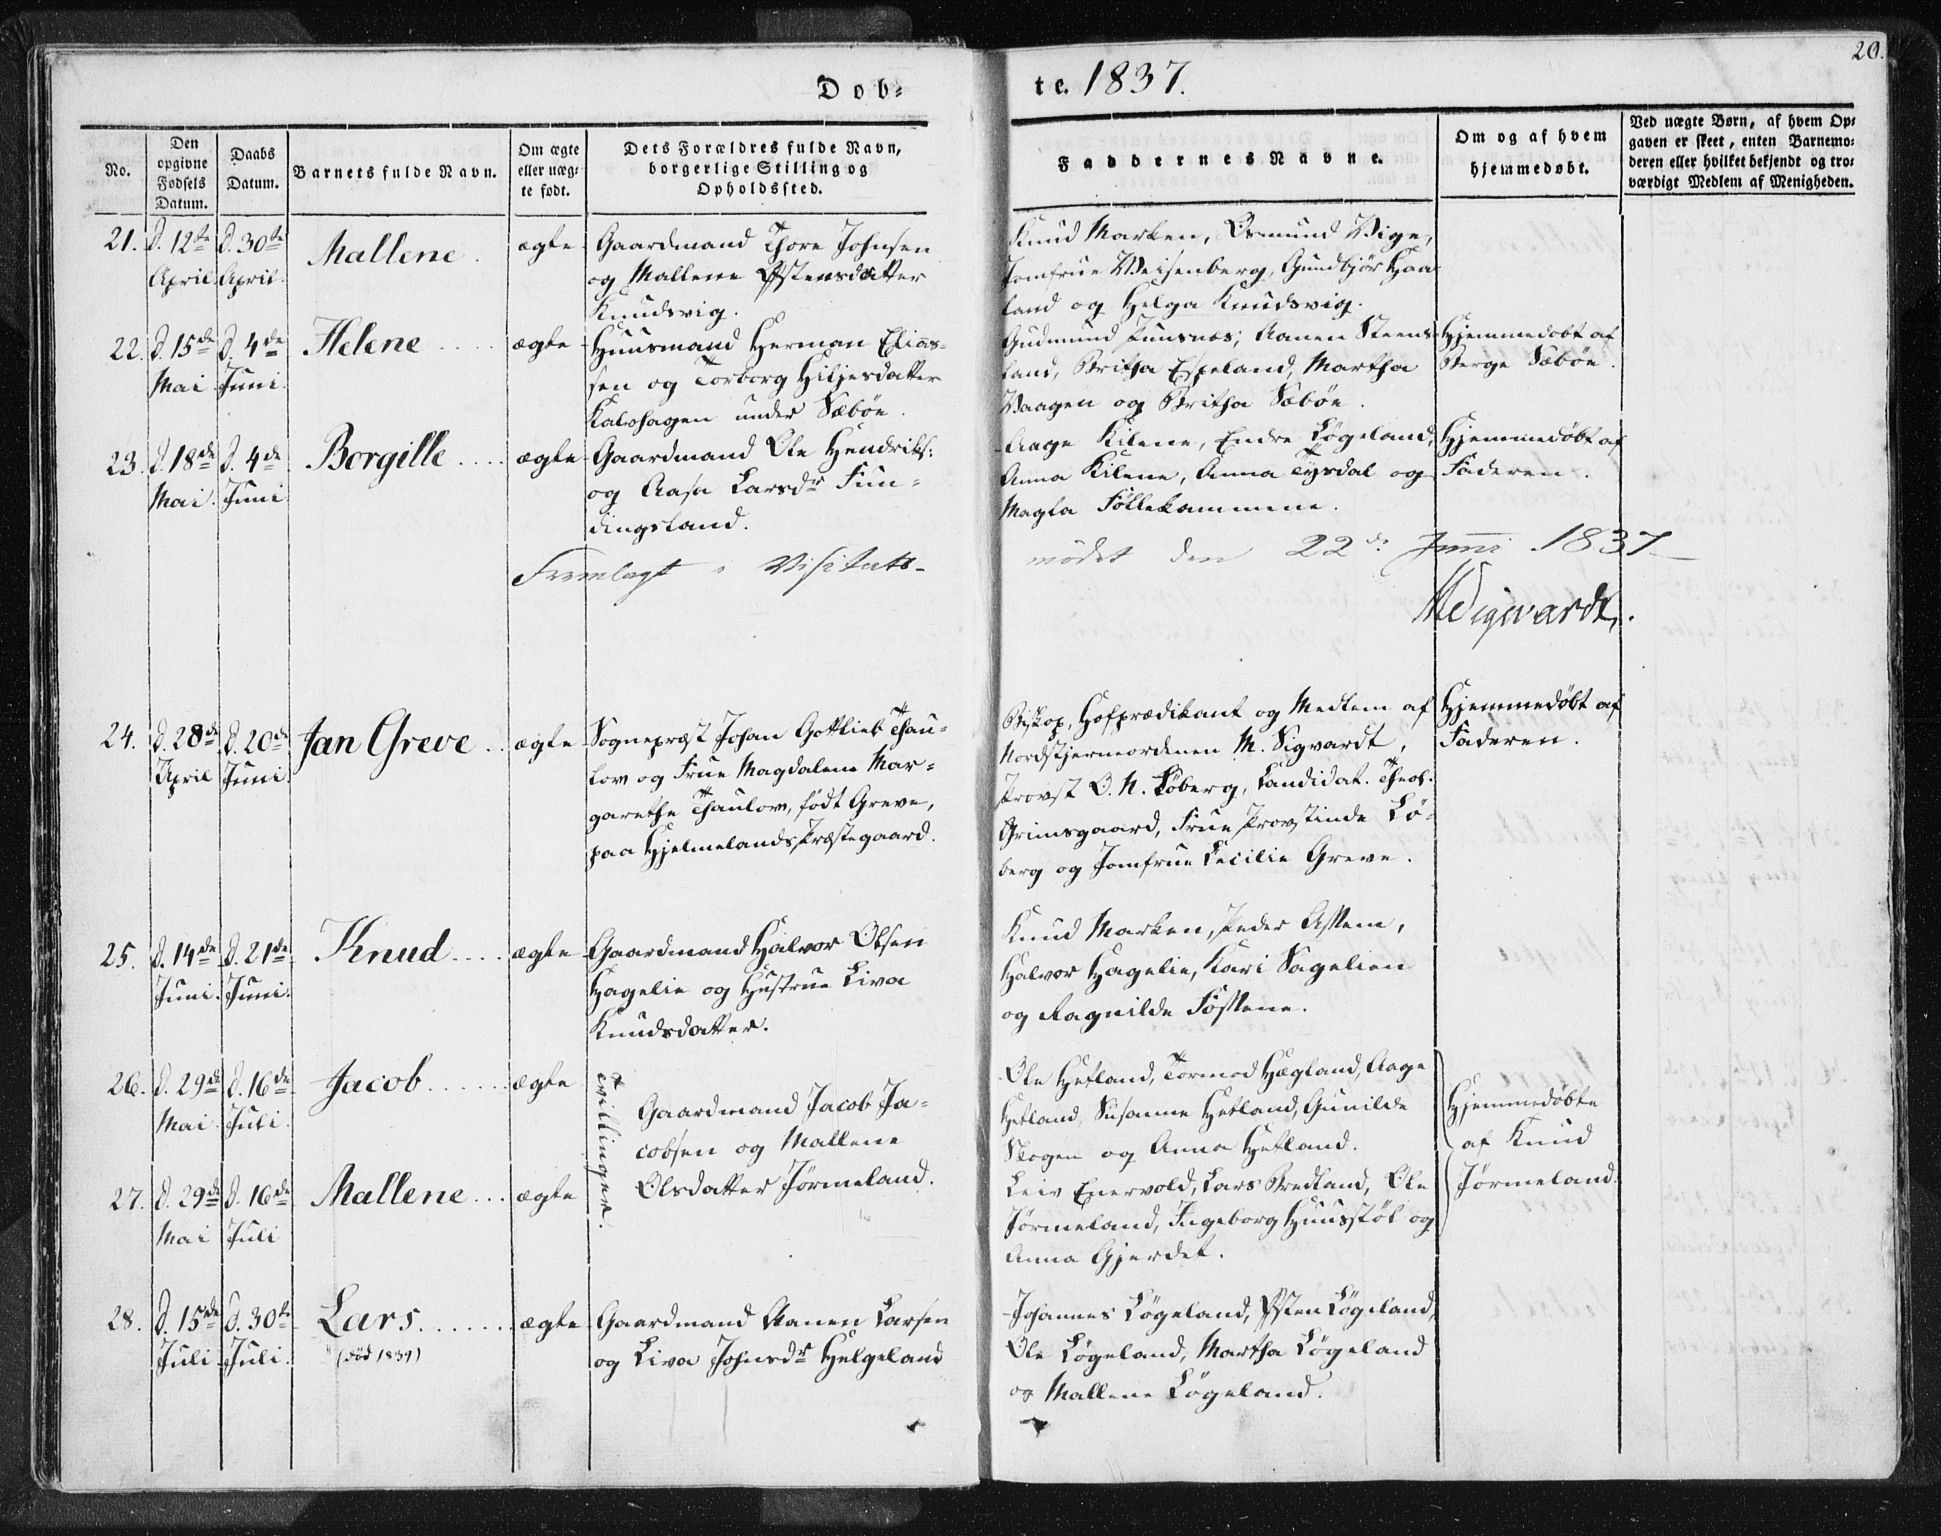 20.
Dob-
te. 1837.
No.
Den
opgivne
Fødsels
Datum.
Daabs
Datum.
Barnets fulde Navn.
Om ægte
eller uæg-
te født.
Dets Forældres fulde Navn,
borgerlige Stilling og
Opholdsfted.
Faddernes Navne.
Om og af hvem
hjemmedøbt.
Ved uægte Børn, af hvem Op-
gaven er skeet, enten Barnemo-
deren eller hvilket bekjendt og tro-
værdigt Medlem af Menigheden.
21.
d. 12te
April
d. 30te
April.
Mallene.
ægte
Gaardmand Thore Johnsen
og Mallene Østensdatter
Knudsvig.
Knud Marken, Osmund Vige,
Jomfrue Meisenberg, Gundbjør Haa-
land og Helga Knudsvig.
22.
d. 15de
Mai
d. 4de
Juni.
Helene
ægte
Huusmand Herman Elias-
sen og Torborg Hiljesdatter
Kalvhagen under Sæbøe.
Gudmund Puusnes; Aanen Steens-
land, Britha Espeland, Martha
Vaagen og Britha Sæbøe.
Hjemmedøbt af
Børge Sæbøe.
23.
d. 18de
Mai.
d. 4de
Juni
Borgille
ægte
Gaardmand Ole Hendriks:
og Aasa Larsdr Fun-
dingsland.
Aage Kilene, Endre Løgeland,
Anna Kilene, Anna Tysdal og
Magla Follekammene.
Hjemmedøbt af
Faderen.
Fremlagt i Visitats-
mødet den 22de Juni 1837
M Sigwardt.
24.
d. 28de
April
d. 20de
Juni.
Jan Greve
ægte
Sognepræst Johan Gottlieb Thau-
low og Frue Magdalene Mar-
garethe Thaulow, født Greve,
paa Hjelmelands Præstegaard.
Biskop, Hofprædikant og Medlem af
Nordstjerneordenen M. Sigvardt,
Provst O. N. Løberg, Candidat. Theol.
Grimsgaard, Frue Provstinde Lø-
berg og Jomfrue Cecilie Greve.
Hjemmedøbt af
Faderen.
25.
d. 14de
Juni.
d. 21de
Juni.
Knud
ægte
Gaardmand Halvor Olsen
Hagelie og Hustrue Liva
Knudsdatter.
Knud Marken, Peder Østeim,
Halvor Hagelie, Kari Sagelien
og Ragnilde Fostene.
26.
d. 29de
Mai
d. 16de
Juli.
Jacob
ægte
tvillinger.
Gaardmand Jacob Ja-
cobsen og Mallene
Olsdatter Jørmeland.
Ole Hetland, Tormod Hægland, Aage
Hetland, Susanne Hetland, Gunilde
Skogen og Anna Hetland.
Hjemmedøbte
af Knud
Jørmeland.
27.
d. 29de
Mai
d. 16de
Juli
Mallene
ægte
Leiv Enervold, Lars Bredland, Ole
Jørmeland, Ingeborg Huusstøl og
Anna Gjerdet.
28.
d. 15de
Juli
d. 30te
Juli.
Lars
(død 1839)
ægte
Gaardmand Aanen Larsen
og Liva Johnsdr Helgeland
Johannes Løgeland, Østen Løgeland,
Ole Løgeland, Martha Løgeland
og Mallene Løgeland.